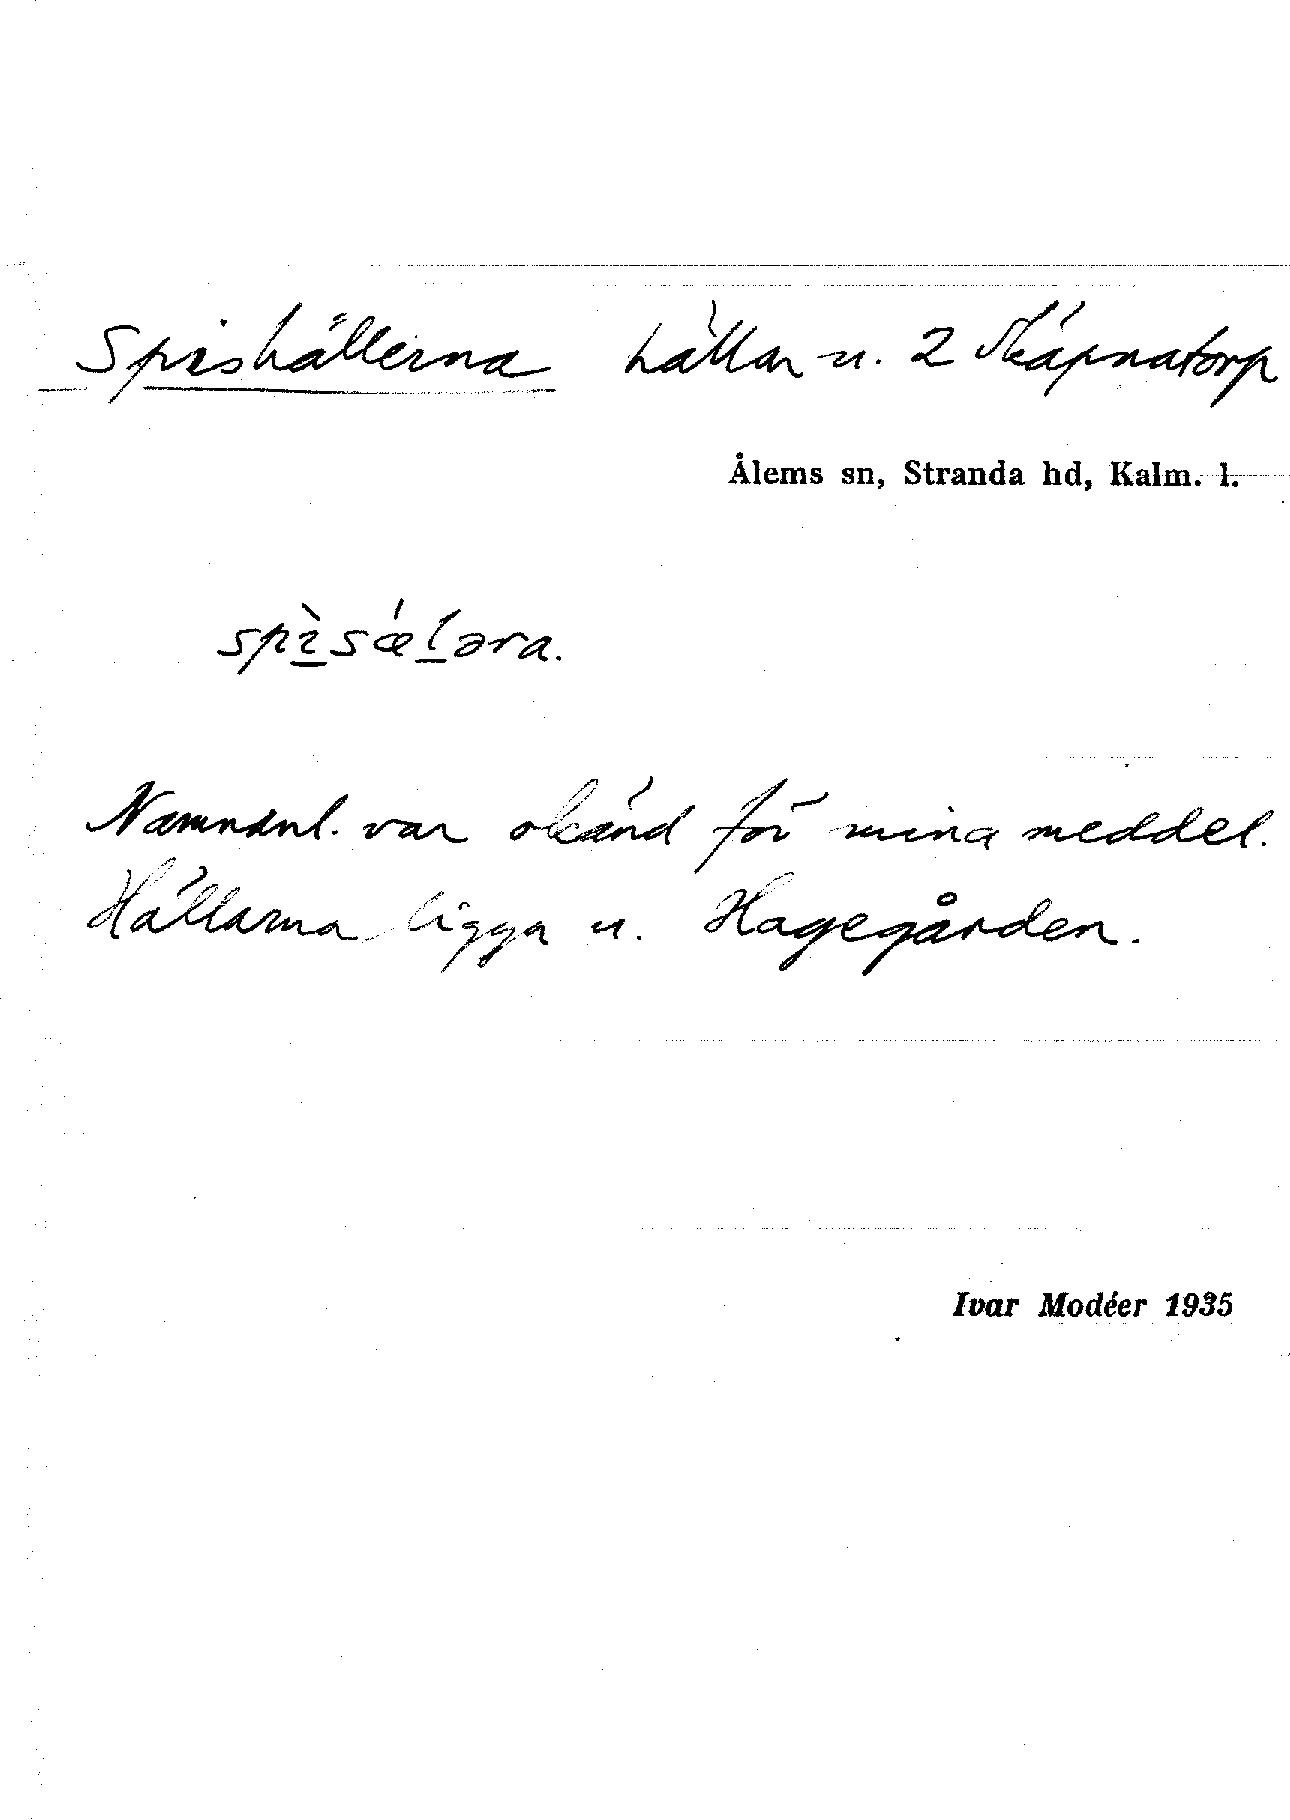 Spishällerna hällar u. 2 Skäpnatorp
Ålems sn, Stranda hd, Kalm. l.
spìsǽləra.
Namnanl. var okänd för mina meddel.
Hällarna ligga u. Hagegården.
Ivar Modéer 1935